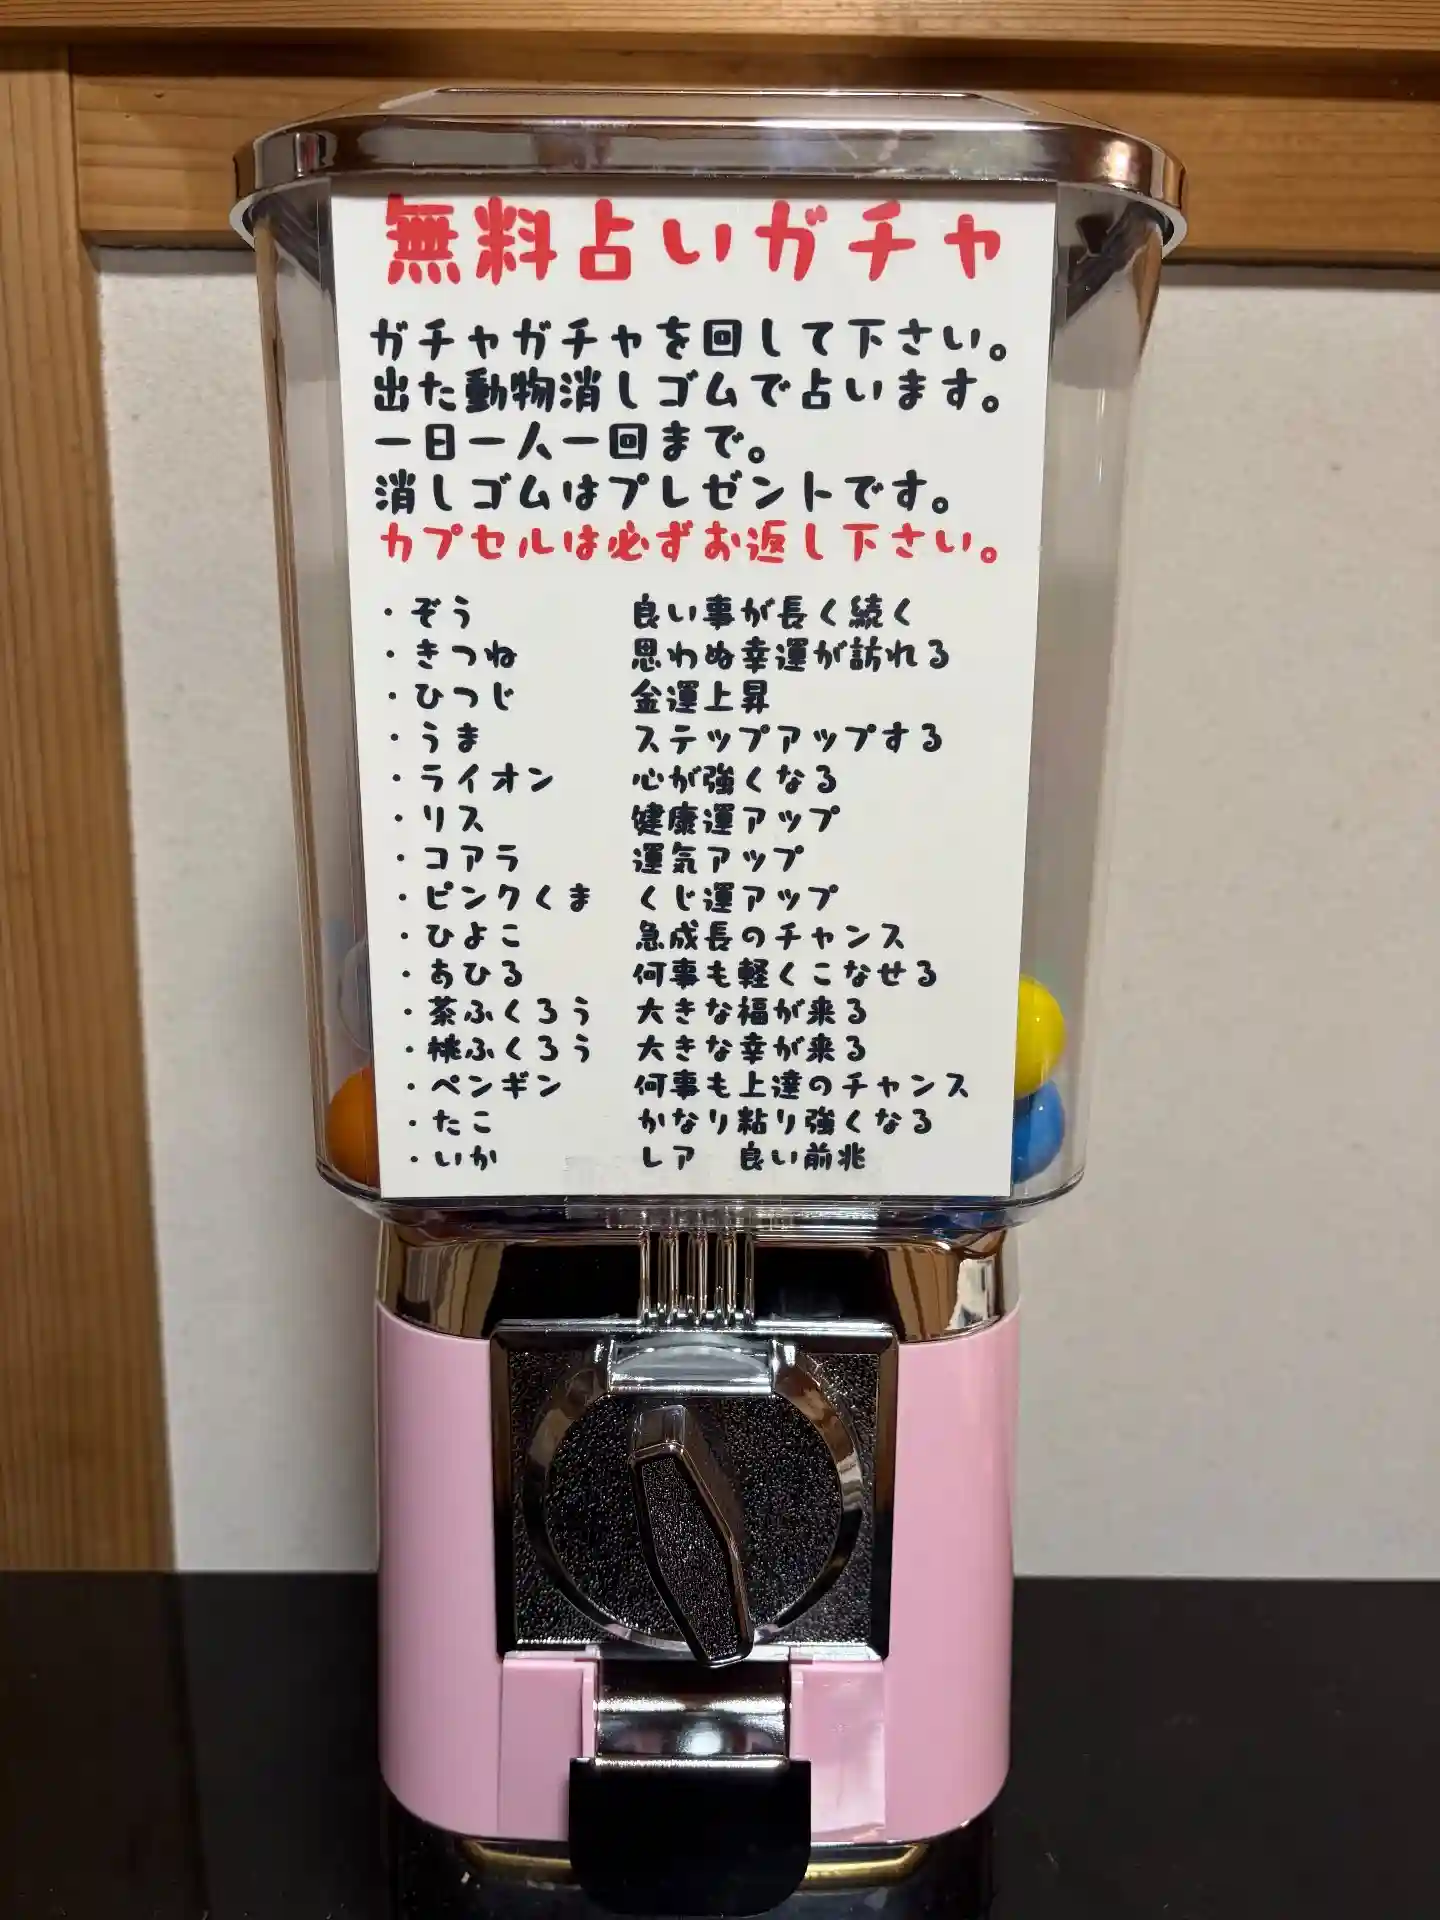 無料占いガチャ
ガチャガチャを回して下さい。
出た動物消しゴムで占います。
一日一人一回まで。
消しゴムはプレゼントです。
カプセルは必ずお返し下さい。
・ぞう 良い事が長く続く
・きつね 思わぬ幸運が訪れる
・ひつじ 金運上昇
・うま ステップアップする
・ライオン 心が強くなる
・リス 健康運アップ
・コアラ 運気アップ
・ピンクくま くじ運アップ
・ひよこ 急成長のチャンス
・あひる 何事も軽くこなせる
・茶ふくろう 大きな福が来る
・桃ふくろう 大きな幸が来る
・ペンギン 何事も上達のチャンス
・たこ かなり粘り強くなる
・いか レア 良い前兆